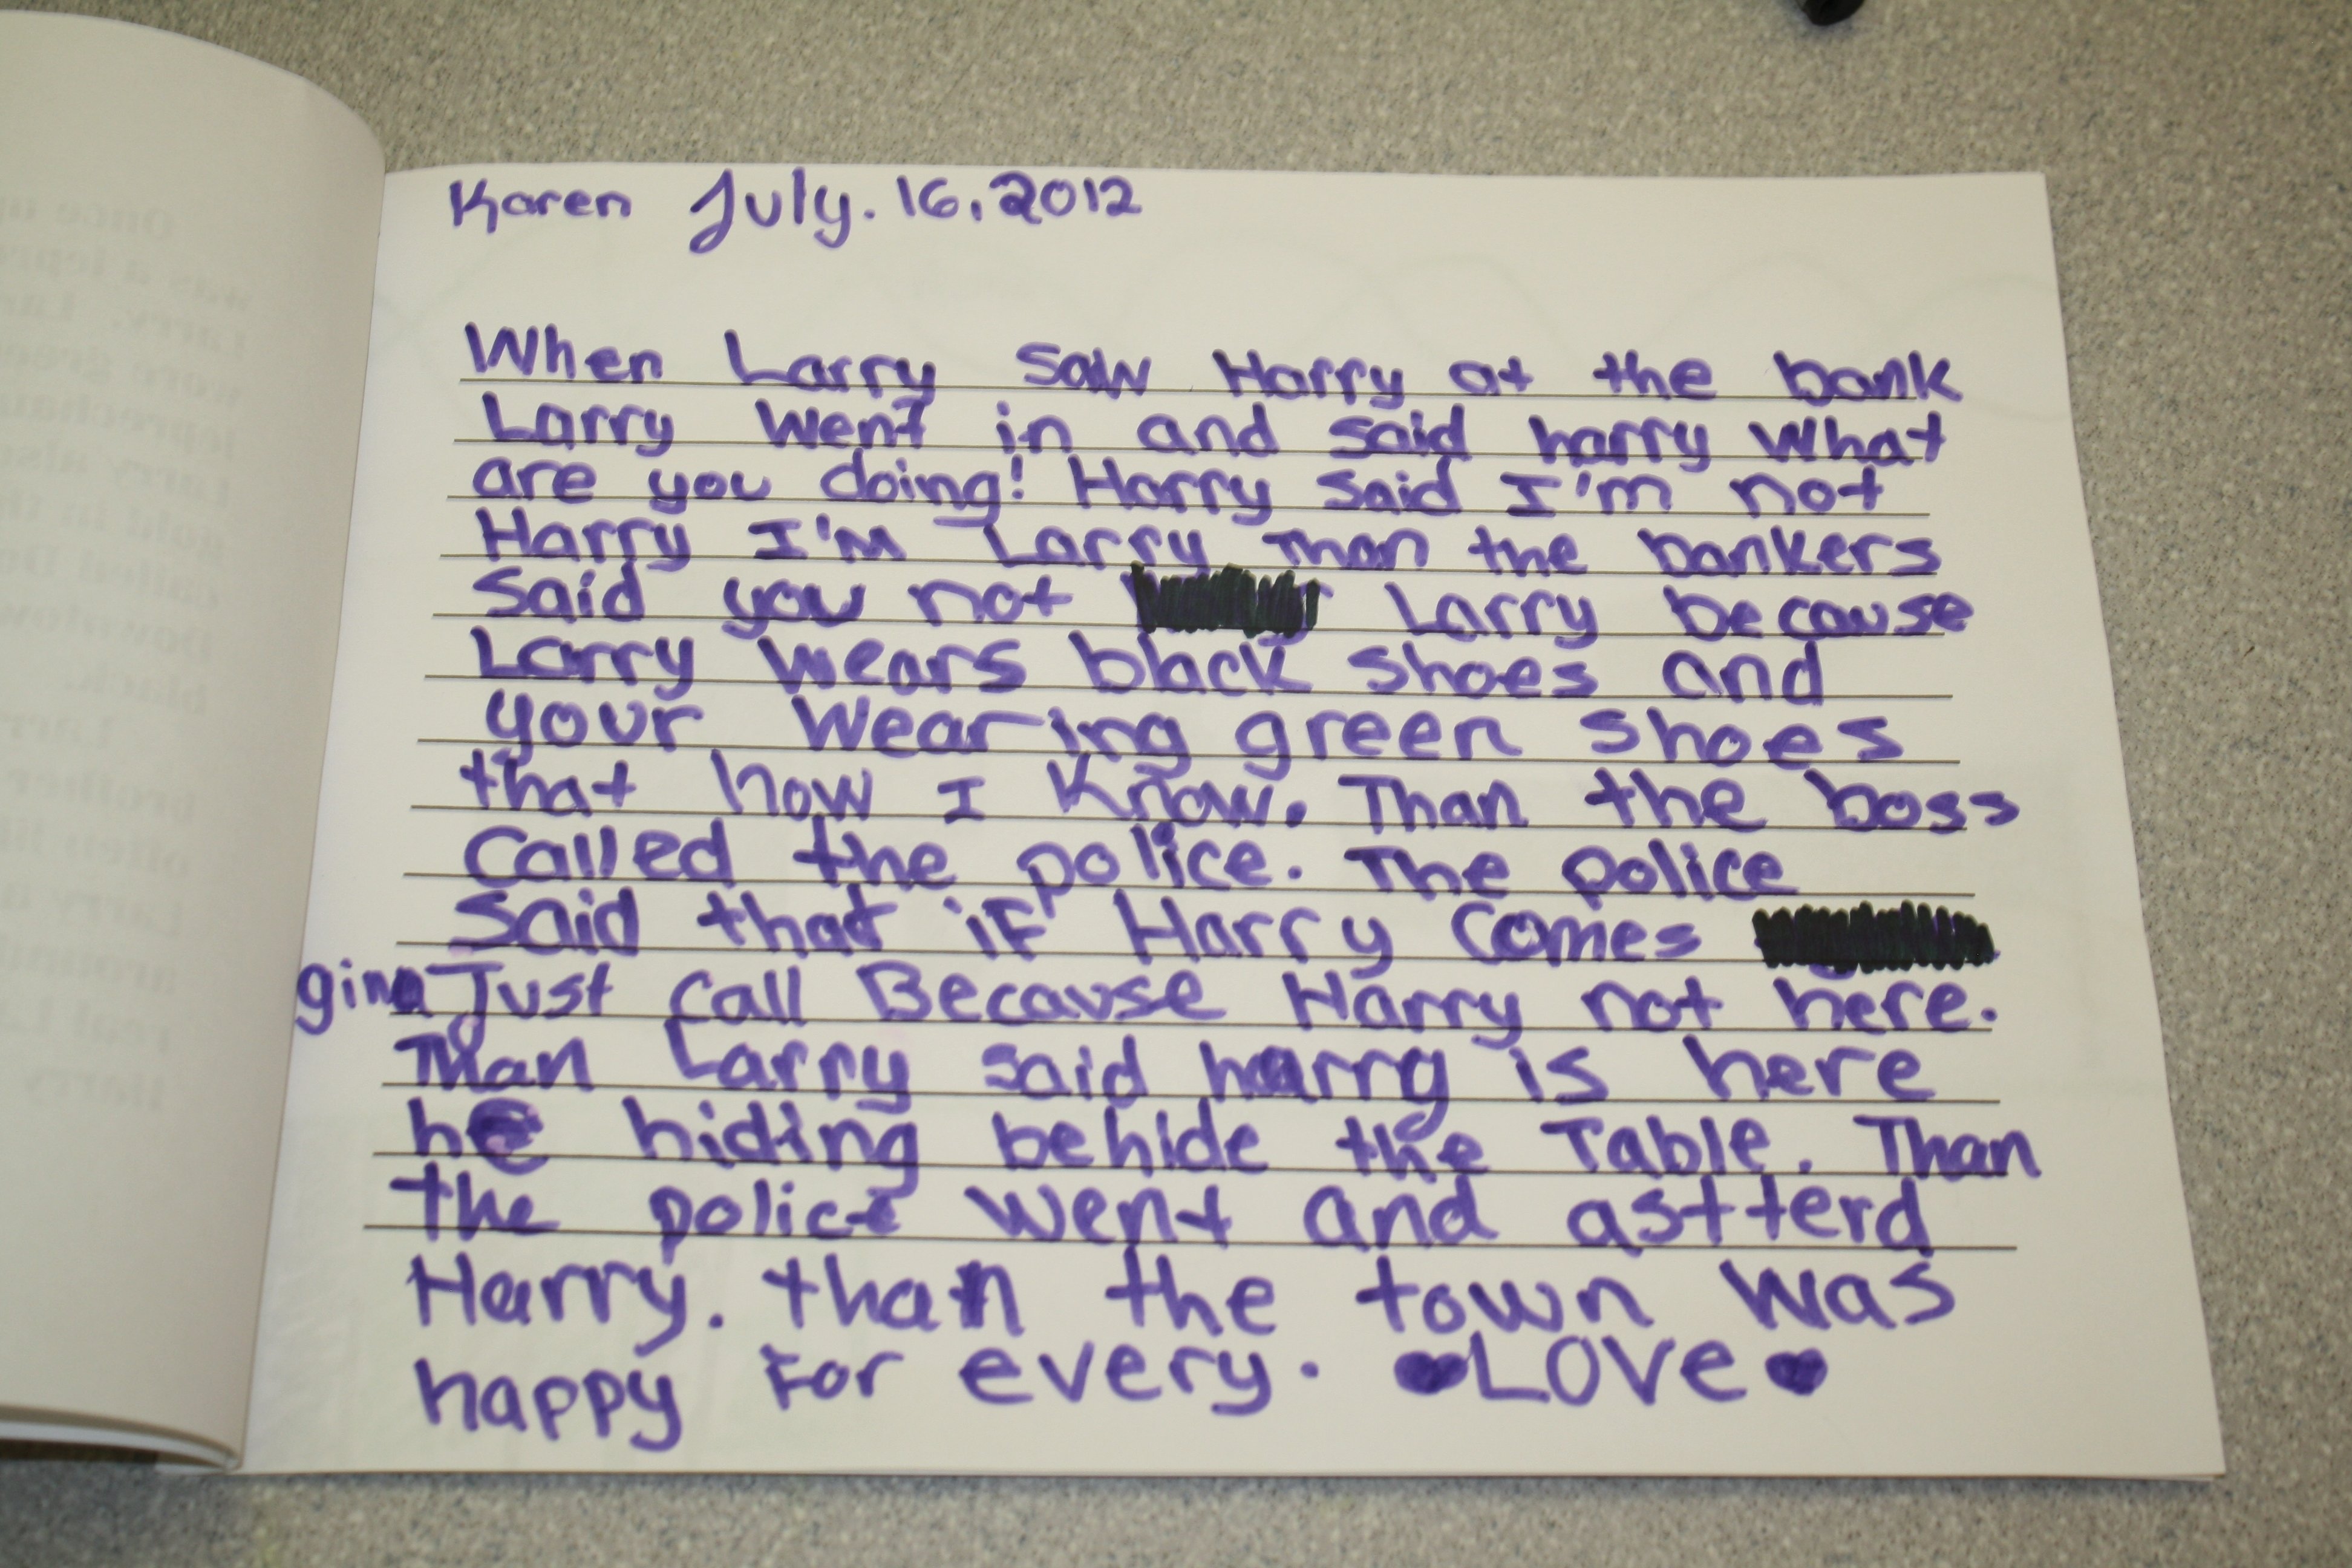 Karen July. 16, 2012
When Larry saw Harry at the bank
Larry went in and said harry what
are you doing! Harry said I'm not
Harry I'm Larry Than the bankers
said you not Larry because
Larry wears black shoes and
your wearing green shoes
that how I know. Than the boss
called the police. The police
said that if Harry comes
gina Just call Because Harry not here.
Than Larry said harry is here
he hiding behide the Table. Than
the police went and astterd
Harry. than the town was
happy for every. ♥LOVe♥